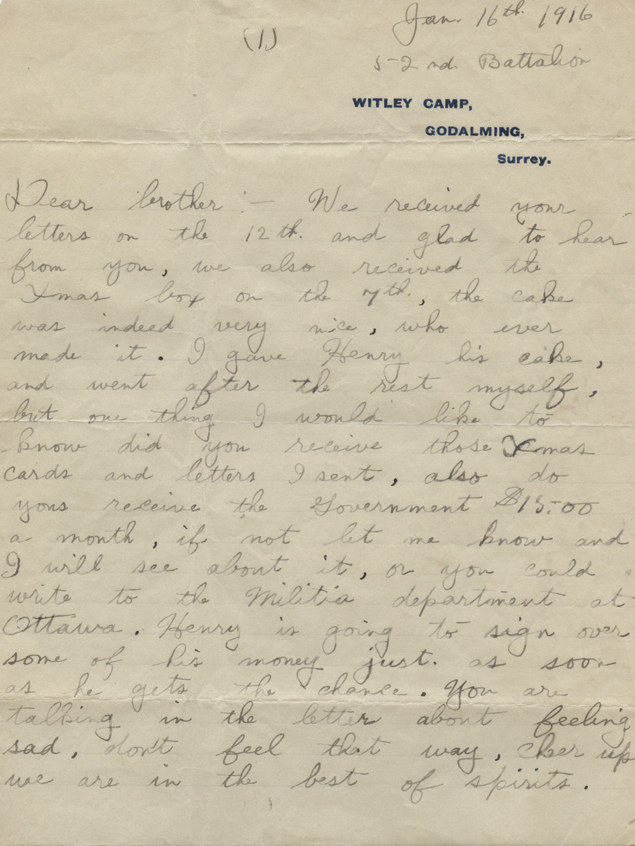 (1)
Jan. 16th 1916
52nd Battalion
WITLEY CAMP,
GODALMING,
Surrey.
Dear brother :- We received your
letters on the 12th. and glad to hear
from you, we also received the
Xmas box on the 7th., the cake
was indeed very nice, who ever
made it. I gave Henry his cake,
and went after the rest myself,
but one thing I would like to
know did you receive those Xmas
cards and letters I sent, also do
yous receive the Government $15.00
a month, if not let me know and
I will see about it, or you could
write to the Militia department at
Ottawa. Henry is going to sign over
some of his money just. as soon
as he gets the chance. You are
talking in the letter about feeling
sad, don't feel that way, cheer up
we are in the best of spirits.